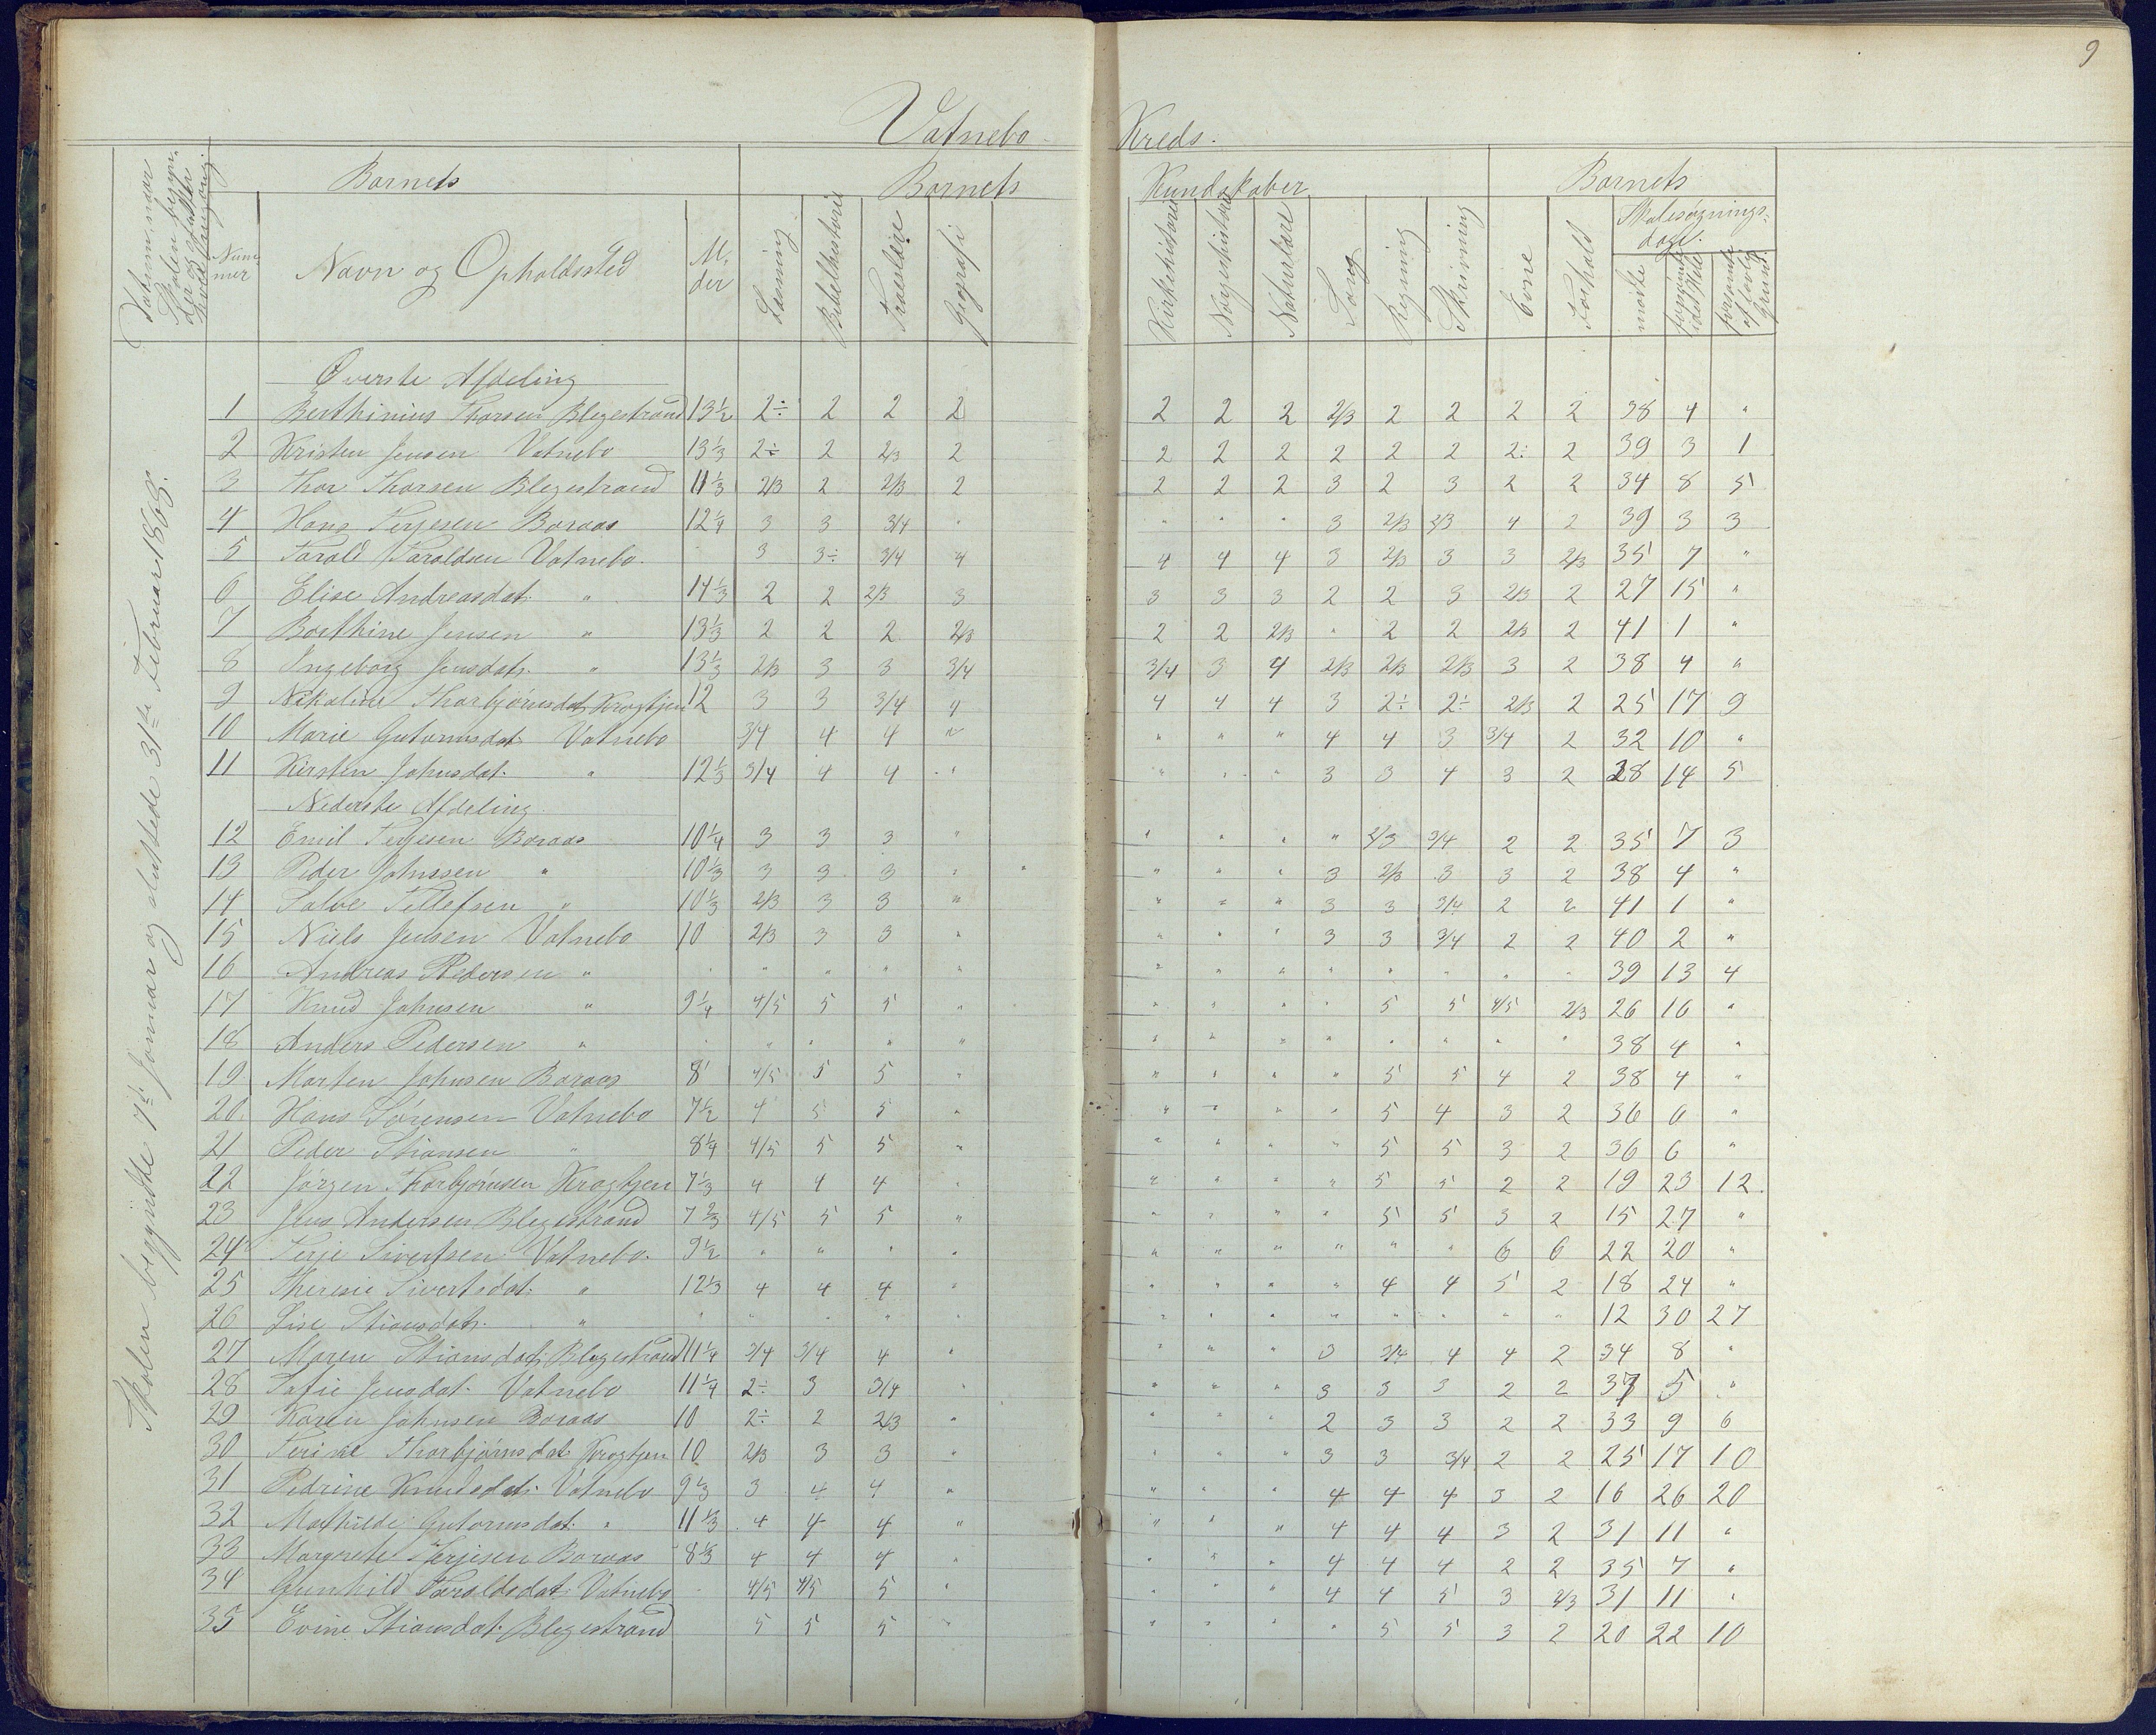 9
Vatnebo Kreds.
Datum, naar Skolen begyn-
der og slutter
Barnets Barnets Kundskaber Barnets
Num-
mer Navn og Opholdssted Al-
der Læsning Bibelhistorie Troeslære Geografi Kirkehistorie Norgeshistorie Naturlære Sang Regning Skrivning Evne Forhold Skolesøgnings-
dage.
mødte forsømte i det Hele forsømte af lovlig Grund
Skolen begyndte 7de Januar og sluttede 31te Februar 1868.
Øverste Afdeling
1 Berthinius Thorsen Blegestrand 13½ 2÷ 2 2 2 2 2 2 2/3 2 2 2 2 38 4 "
2 Kristen Jensen Vatnebo 13⅓ 2÷ 2 2/3 2 2 2 2 2 2 2 2÷ 2 39 3 1
3 Thor Thorsen Blegestrand 11⅓ 2/3 2 2/3 2 2 2 2 3 2 3 2 2 34 8 5
4 Hans Terjesen Boraas 12¼ 3 3 3/4 " " " " 3 2/3 2/3 4 2 39 3 3
5 Tarald Taraldsen Vatnebo. 3 3÷ 3/4 4 4 4 4 3 2/3 3 3 2/3 35 7 "
6 Elise Andreasdat. " 14⅓ 2 2 2/3 3 3 3 3 2 2 3 2/3 2 27 15 "
7 Berthine Jensen " 13⅓ 2 2 2 2/3 2 2 2/3 " 2 2 2/3 2 41 1 "
8 Ingeborg Jensdat. " 13⅓ 2/3 3 3 3/4 3/4 3 4 2/3 2/3 2/3 3 2 38 4 "
9 Nikoline Thorbjørnsdat. Krogtjen 12 3 3 3/4 4 4 4 4 3 2÷ 2÷ 2/3 2 25 17 9
10 Marie Gutormsdat. Vatnebo 3/4 4 4 " " " " 4 4 3 3/4 2 32 10 "
11 Kirsten Johnsdat. " 12⅓ 3/4 4 4 " " " " 3 3 4 3 2 28 14 5
Nederste Afdeling
12 Emil Terjesen Boraas 10¼ 3 3 3 " " " " " 2/3 3/4 2 2 35 7 3
13 Peder Johnsen " 10⅓ 3 3 3 " " " " " 3 2/3 3 3 2 38 4 "
14 Salve Tellefsen " 10⅓ 2/3 3 3 " " " " 3 3 3/4 2 2 41 1 "
15 Niels Jensen Vatnebo 10 2/3 3 3 " " " " 3 3 3/4 2 2 40 2 "
16 Andreas Pedersen " " " " " " " " " " " " " " 39 13 4
17 Knud Johnsen " 9¼ 4/5 5 5 " " " " " 5 5 4/5 2/3 26 16 "
18 Anders Pedersen " " " " " " " " " " " " " " 38 4 "
19 Morten Johnsen Boraas 8 4/5 5 5 " " " " " 5 5 4 2 38 4 "
20 Hans Sørensen Vatnebo 7½ 4 5 5 " " " " " 5 4 3 2 36 6 "
21 Peder Stiansen " 8¼ 4/5 5 5 " " " " " 5 5 3 2 36 6 "
22 Jørgen Thorbjørnsen Krogtjen 7⅓ 4 4 4 " " " " " 5 5 2 2 19 23 12
23 Jens Andersen Blegestrand 7⅔ 4/5 5 5 " " " " " 5 5 3 2 15 27 "
24 Terje Sivertsen Vatnebo. 9½ " " " " " " " " " " 6 6 22 20 "
25 Theresie Sivertsdat. " 12⅓ 4 4 4 " " " " " 4 4 5 2 18 24 "
26 Lise Stiansdat. " " " " " " " " " " " " " " 12 30 27
27 Maren Stiansdat. Blegestrand 11¼ 3/4 3/4 4 " " " " 3 3/4 4 4 2 34 8 "
28 Sofie Jensdat. Vatnebo 11¼ 2÷ 3 3/4 " " " " 3 3 3 2 2 37 5 "
29 Karen Johnsen Boraas 10 2÷ 2 2/3 " " " " 2 3 3 2 2 33 9 6
30 Terine Thorbjørnsdat Krogtjen 10 2/3 3 3 " " " " 3 3 3/4 2 2 25 17 10
31 Pedrine Knudsdat. Vatnebo 9⅓ 3 4 4 " " " " 4 4 4 3 2 16 26 20
32 Mathilde Gutormsdat. " 11⅓ 4 4 4 " " " " 4 4 4 3 2 31 11 "
33 Margrete Terjesen Boraas 8⅓ 4 4 4 " " " " 4 4 4 2 2 35 7 "
34 Gunhild Taraldsdat. Vatnebo 4/5 4/5 5 " " " " 4 4 5 3 2/3 31 11 "
35 Evine Stiansdat. Blegestrand 5 5 5 " " " " " 5 5 3 2 20 22 10